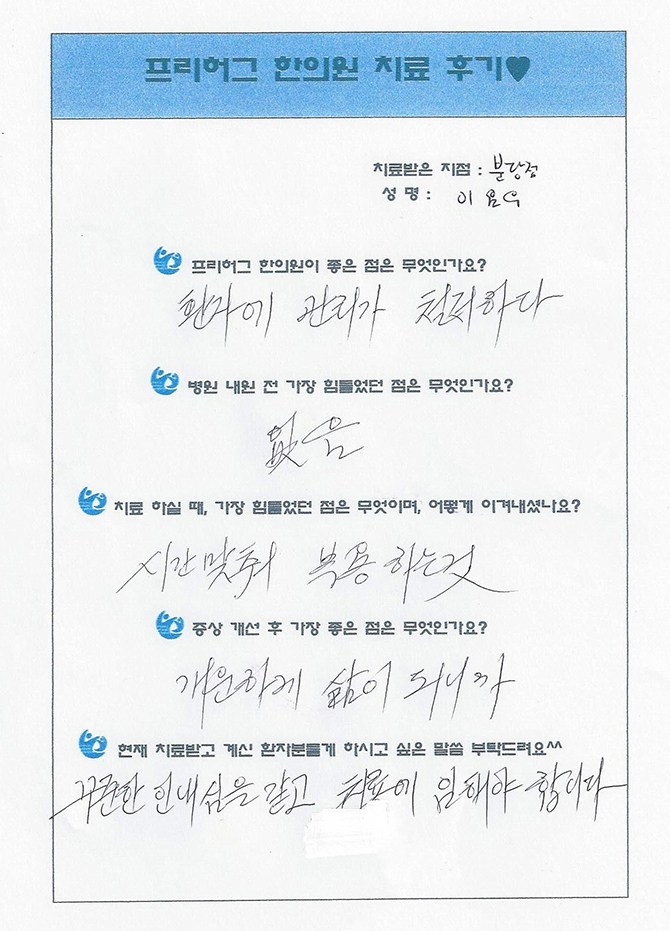 프리허그 한의원 치료 후기♥
치료받은 지점 : 분당점
성 명 : 이
프리허그 한의원이 좋은 점은 무엇인가요?
환자에 관리가 철저하다
병원 내원 전 가장 힘들었던 점은 무엇인가요?
없음
치료 하실 때, 가장 힘들었던 점은 무엇이며, 어떻게 이겨내셨나요?
시간맞춰 복용하는것
증상 개선 후 가장 좋은 점은 무엇인가요?
개운하게 삶이 되니까
현재 치료받고 계신 환자분들게 하시고 싶은 말씀 부탁드려요^^
꾸준한 인내심을 갖고 치료에 임해야 합니다